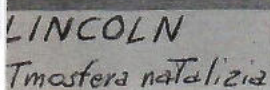 LINCOLN
Tmosfera natalizia